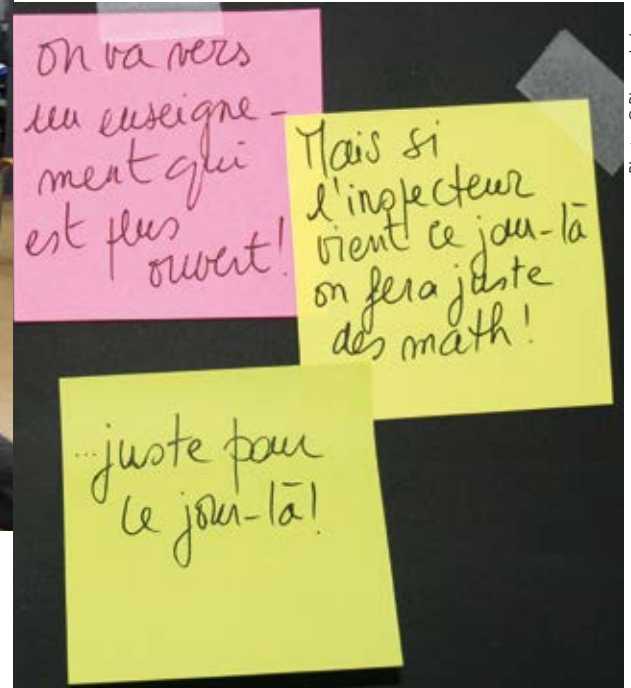 on va vers
un enseigne-
ment qui
est plus
ouvert!
Mais si
l'inspecteur
vient ce jour-là
on fera juste
des math!
...juste pour
ce jour-là!